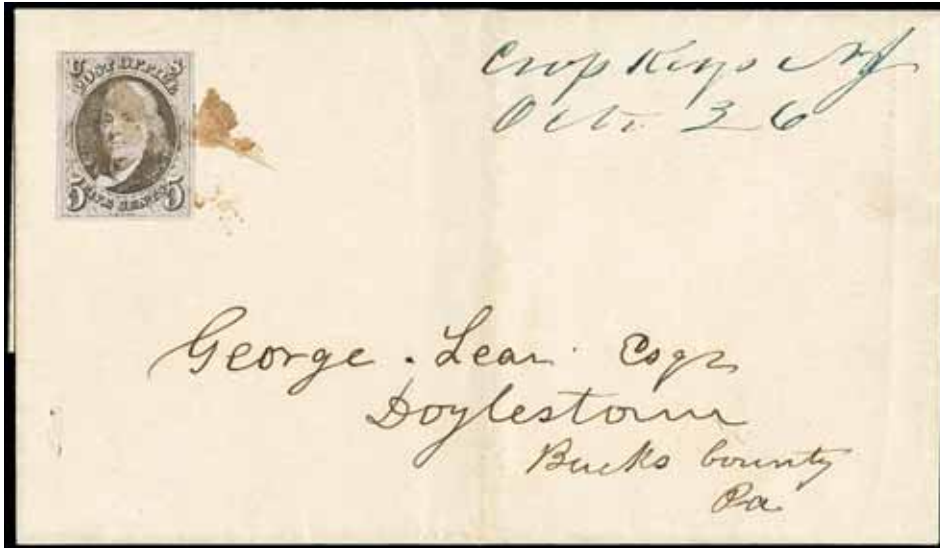 POST OFFICE
5 FIVE CENTS 5
Cross Keys NJ
Oct. 26
George . Lear Esqr
Doylestown
Bucks County
Pa